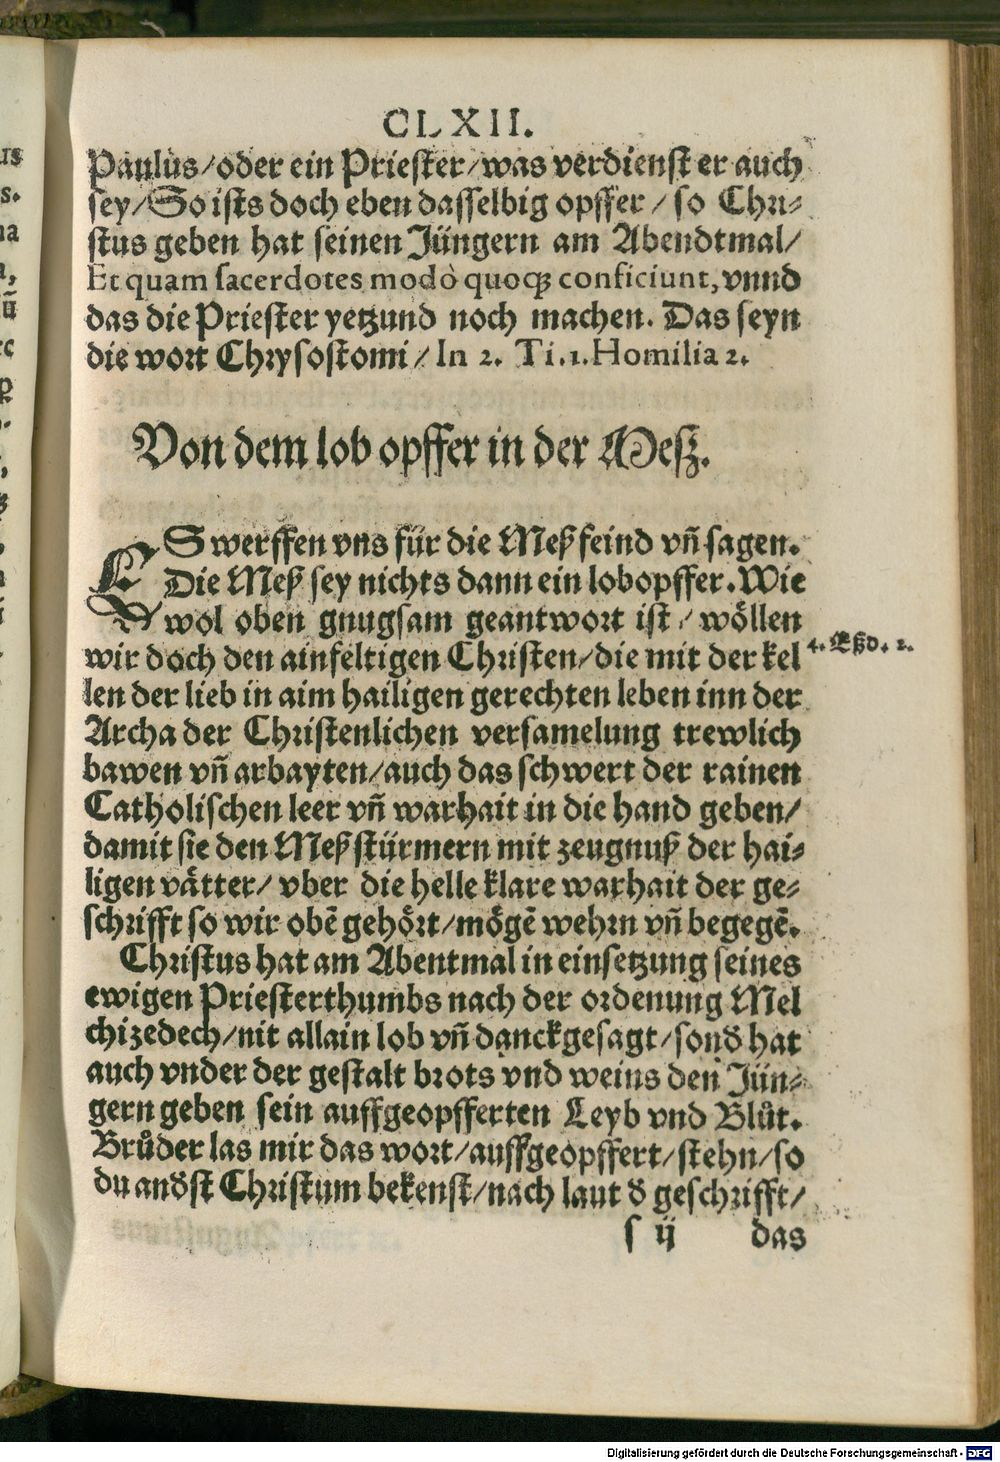 CLXII.
Paulus/oder ein Priester/was verdienst er auch
sey/So ists doch eben dasselbig opffer/so Chri⸗
stus geben hat seinen Jüngern am Abendtmal/
Et quam sacerdotes modò quoqꝫ conficiunt, vnnd
das die Priester yetzund noch machen. Das seyn
die wort Chrysostomi/In 2. Ti.1. Homilia 2.
Von dem lob opffer in der Mesz.
ES werffen vns für die Meß feind vñ sagen.
Die Meß sey nichts dann ein lobopffer. Wie
wol oben gnugsam geantwort ist/wöllen
wir doch den ainfeltigen Christen/die mit der kel
4. Eßd. 2.
len der lieb in aim hailigen gerechten leben inn der
Archa der Christenlichen versamelung trewlich
bawen vñ arbayten/auch das schwert der rainen
Catholischen leer vñ warhait in die hand geben/
damit sie den Meß stürmern mit zeugnuß der hai⸗
ligen vätter/vber die helle klare warhait der ge⸗
schrifft so wir obē gehört/mögē wehrn vñ begegē.
Christus hat am Abentmal in einsetzung seines
ewigen Priesterthumbs nach der ordenung Mel
chizedech/nit allain lob vñ danckgesagt/sond̕ hat
auch vnder der gestalt brots vnd weins den Jün⸗
gern geben sein auffgeopfferten Leyb vnd Blůt.
Brůder las mir das wort/auffgeopffert/stehn/so
du and̕st Christum bekenst/nach laut d̕ geschrifft/
s ij das
Digitalisierung gefördert durch die Deutsche Forschungsgemeinschaft - DFG